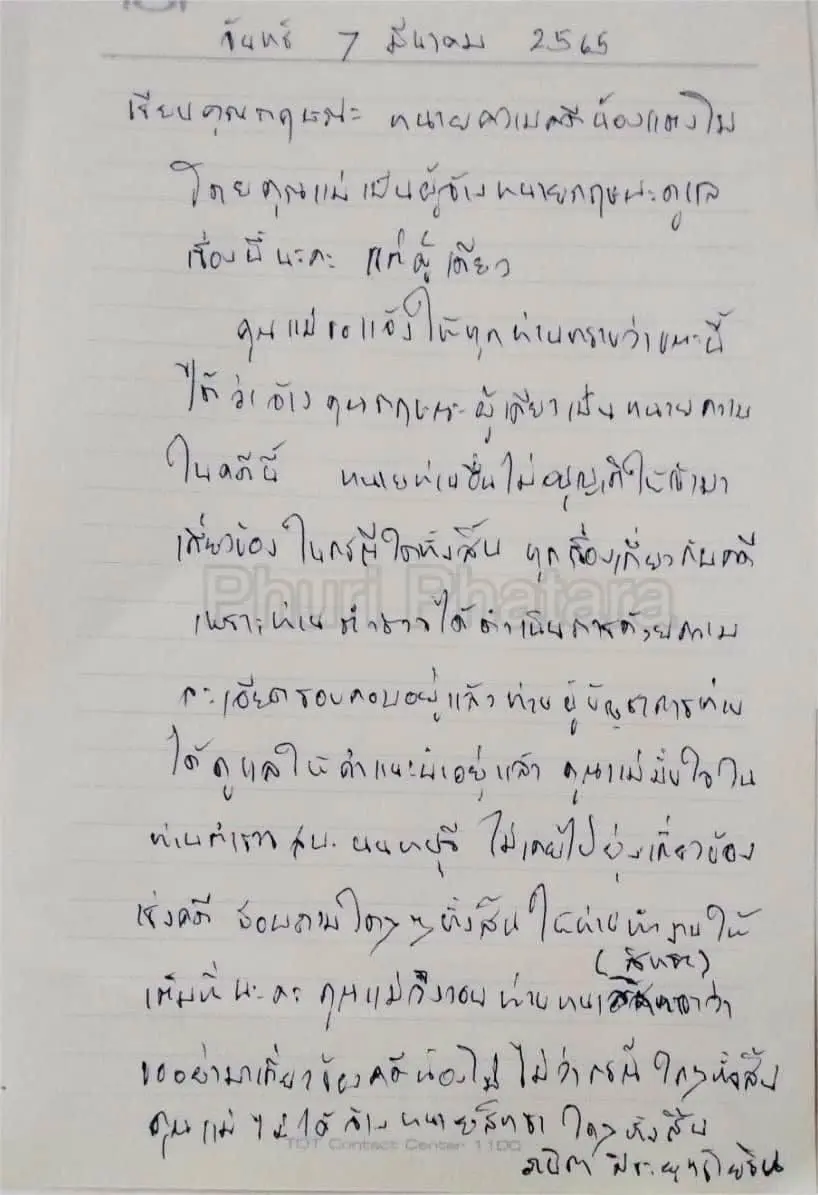 จันทร์ 7 มีนาคม 2565
เรียนคุณกฤษณะ ทนายความคดีน้องแตงโม
โดยคุณแม่เป็นผู้จ้างทนายกฤษณะดูแล
เรื่องนี้นะคะ แต่ผู้เดียว
คุณแม่ขอแจ้งให้ทุกท่านทราบว่าขณะนี้
ได้ว่าจ้างคุณกฤษณะผู้เดียวเป็นทนายความ
ในคดีนี้ ทนายท่านอื่นไม่อนุญาติให้เข้ามา
เกี่ยวข้องในกรณีใดทั้งสิ้น ทุกเรื่องเกี่ยวกับคดี
Phuri Phatara
เพราะท่านตำรวจได้ดำเนินการด้วยความ
ละเอียดรอบคอบอยู่แล้วท่านผู้บัญชาการท่าน
ได้ดูแลให้คำแนะนำอยู่แล้ว คุณแม่มั่นใจใน
ท่านตำรวจ สภ. นนทบุรี ไม่เคยไปยุ่งเกี่ยวข้อง
เรื่องคดี สอบถามใดๆ ทั้งสิ้น ให้ท่านทำงานให้
(สิทธา)
เต็มที่นะคะ คุณแม่จึงวอนท่านทนาย ว่า
ขออย่ามาเกี่ยวข้องคดีน้องโม ไม่ว่ากรณีใดๆทั้งสิ้น
คุณแม่ไม่ได้จ้างทนายสิทธาใดๆทั้งสิ้น
TOT Contact Center 1100
ภนิดา ศิระยุทธโยธิน